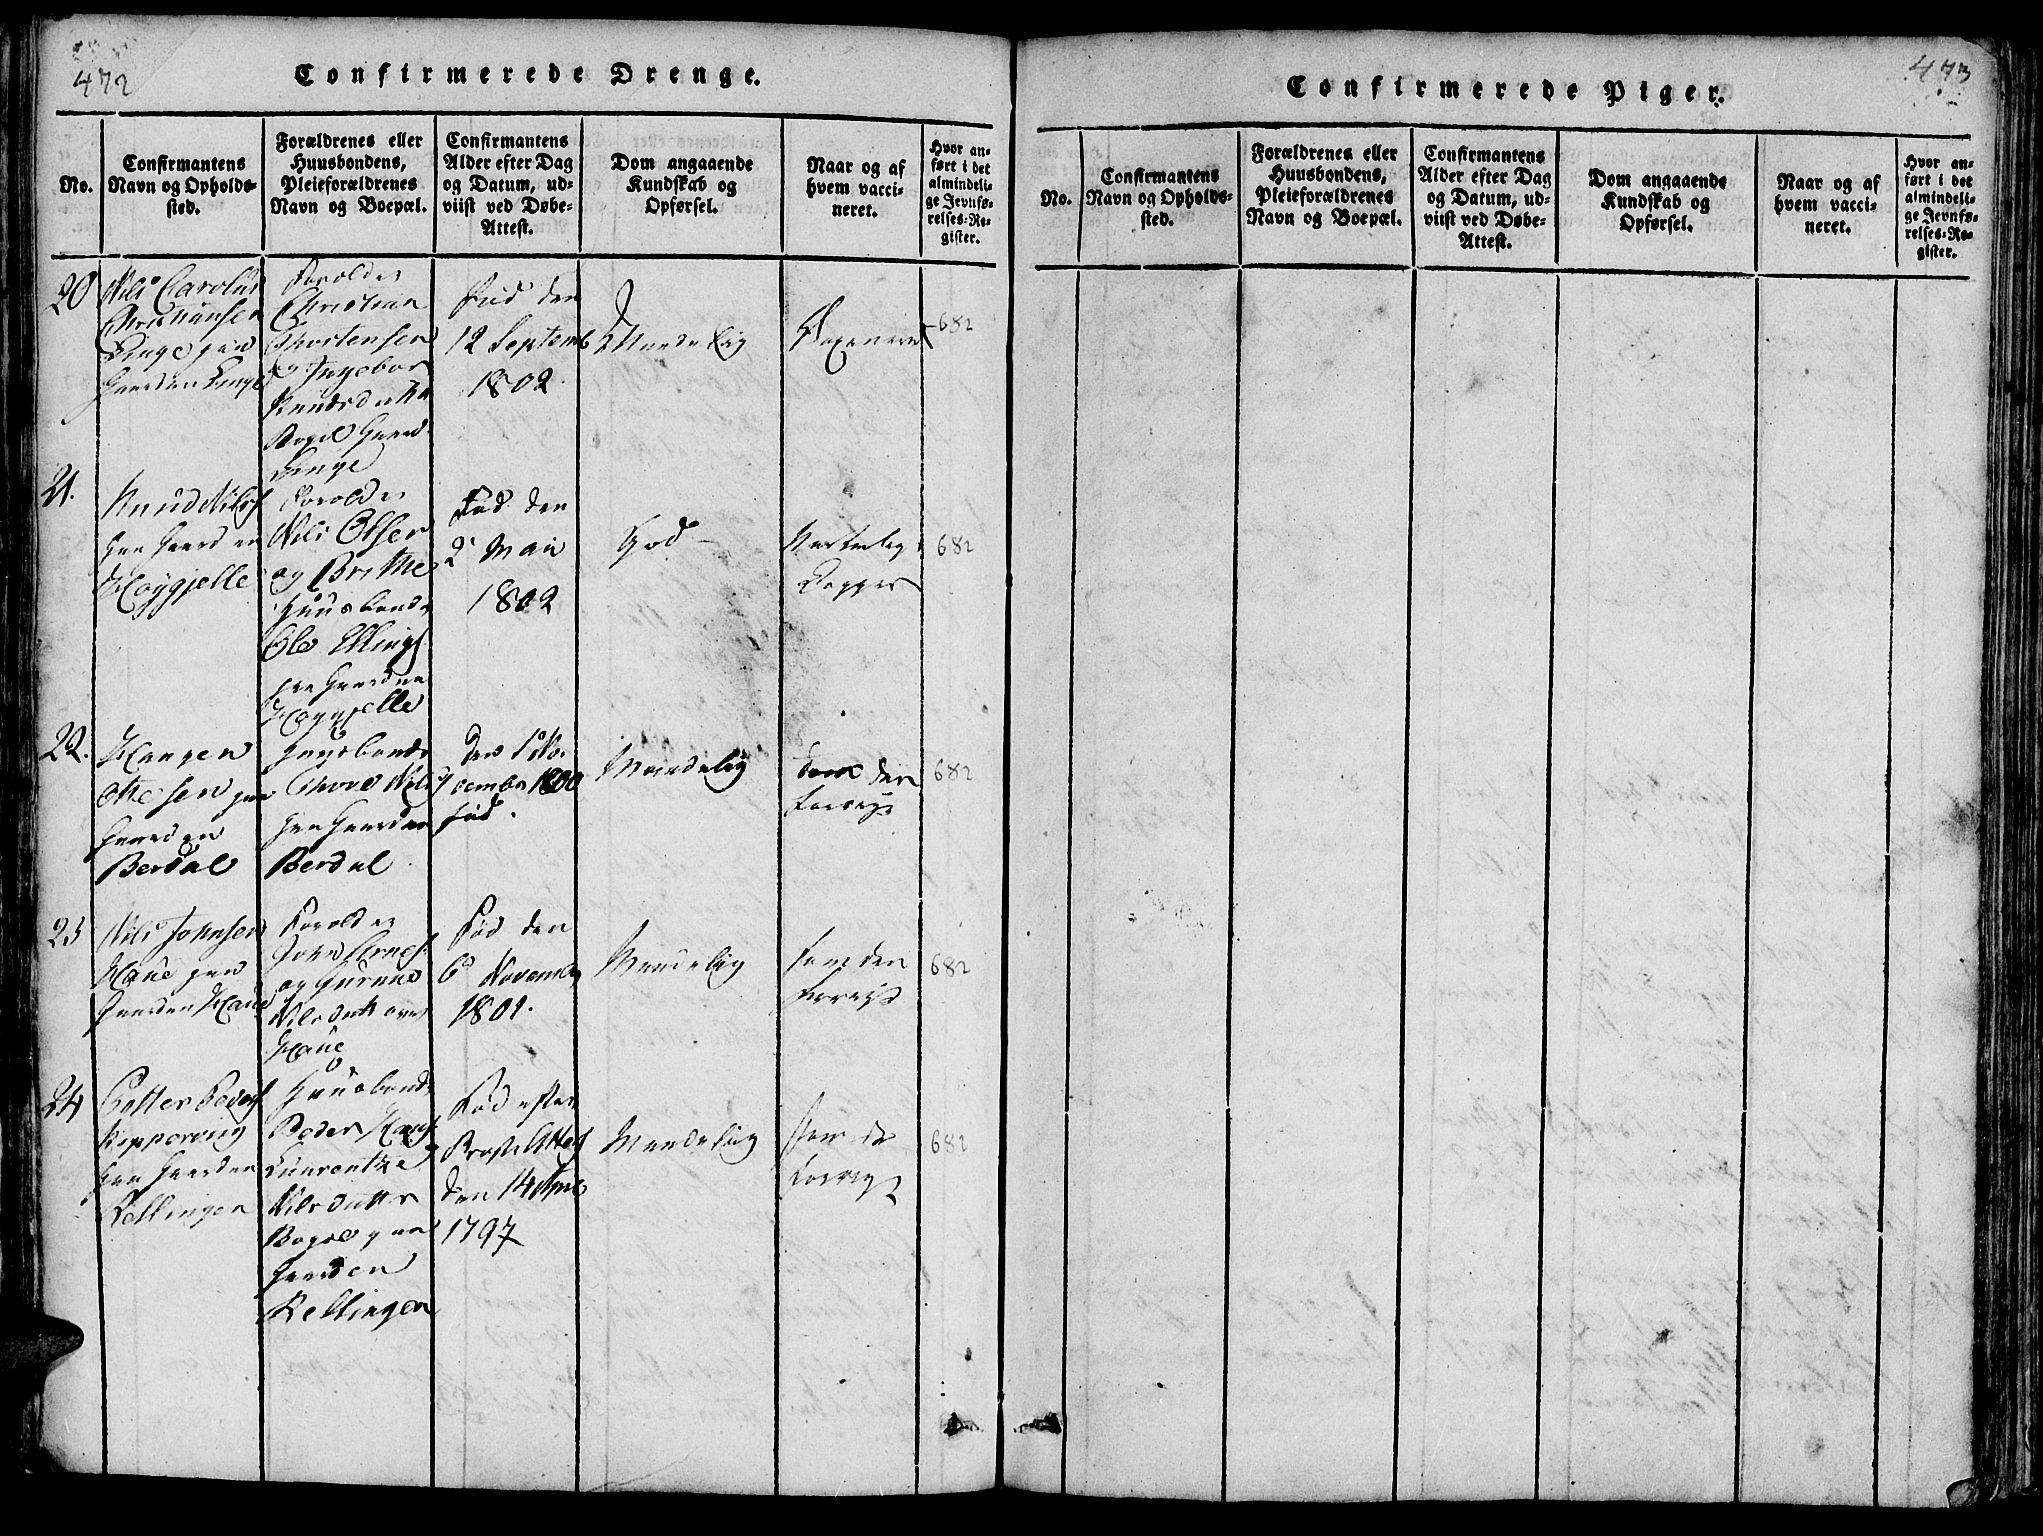 472
Confirmerede Drenge.
No.
Confirmantens
Navn og Opholds-
sted.
Forældrenes eller
Huusbondens,
Pleieforældrenes
Navn og Boepæl.
Confirmantens
Alder efter Dag
og Datum, ud-
viist ved Døbe-
Attest.
Dom angaaende
Kundskab og
Opførsel.
Naar og af
hvem vacci-
neret.
Hvor an-
ført i det
almindeli-
ge Jevnfø-
relses-Re-
gister.
20
Nils Carolus
Christiansen
Linge paa
Gaarden Linge
Foroldes
Christian
Thorstensen
og Ingebor
Knudsdatter
Linge
Fød den
12 Septemb
1802.
Maadelig
682
21.
Knud Nils
paa Gaarden
Høygjelle
Foroldes
Nils Olsen
og Brithe
Huusbonde
Ole Ellings
paa Gaarden
Høygjelle
Fød den
2 Mai
1802
God
Kopper
682
22.
Haagen
Ottesen paa
Gaarden
Berdal
Huusbonde
Thore Nils
paa Gaarden
Berdal
den 1 No-
vember 1800
fød.
Maadelig
som den
forrige
682
23
Nils Johnsen
Haue paa
Gaarden Haue
Foroldes
John Arnes
og Gurine
Nilsdatter
Haue
Fød den
6 Novemb
1801.
Maadelig
som den
forrige
682
24
Petter Peders
paa Gaarden
Rellingen
Huusbonde
Peder Hans
Laurentze
Nilsdatter
Gaarden
Rellingen
Fød efter
Præste Attest
den 14 April
1797
Maadelig
som de
forrige
682
473
Confirmerede Piger.
No.
Confirmantens
Navn og Opholds-
sted.
Forældrenes eller
Huusbondens,
Pleieforældrenes
Navn og Boepæl.
Confirmantens
Alder efter Dag
og Datum, ud-
viist ved Døbe-
Attest.
Dom angaaende
Kundskab og
Opførsel.
Naar og af
hvem vacci-
neret.
Hvor an-
ført i det
almindeli-
ge Jevnfø-
relses-Re-
gister.